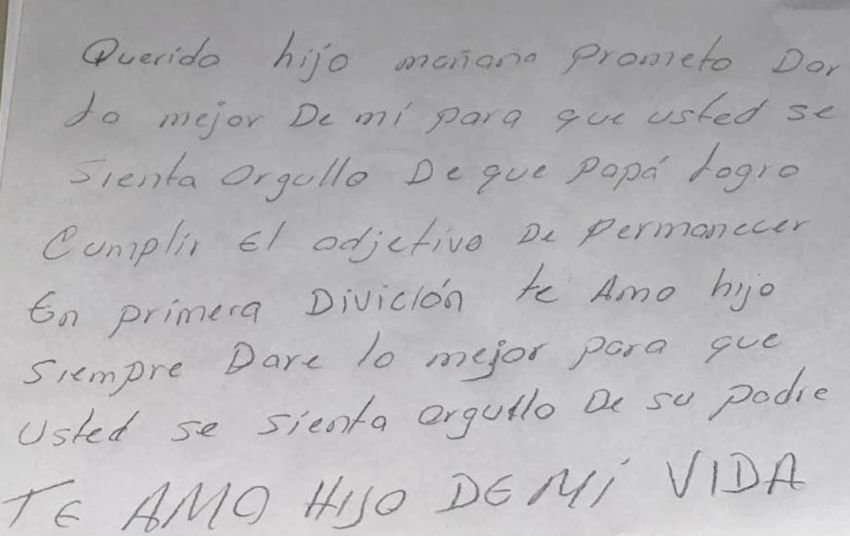 Querido hijo mañana prometo Dar
lo mejor De mí para que usted se
sienta orgullo De que papá logro
Cumplir El adjetivo De permanecer
En primera División te Amo hijo
siempre Dare lo mejor para que
usted se sienta orgullo De su padre
TE AMO HIJO DE MI VIDA